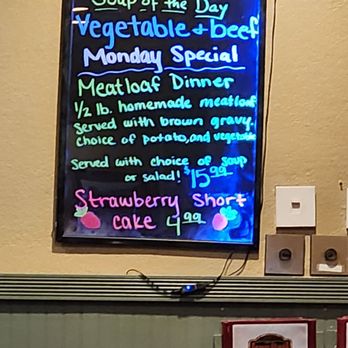 Soup of the Day
Vegetable + beef
Monday Special
Meatloaf Dinner
1/2 lb. homemade meatloaf
served with brown gravy.
choice of potato, and vegetable
Served with choice of soup
or salad! $15.99
Strawberry Short
cake 4.99